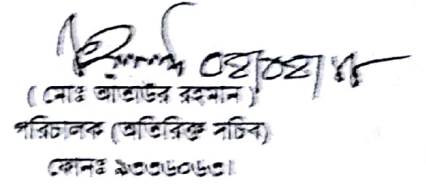 ০২/০২/
( মোঃ আতাউর রহমান )
পরিচালক (অতিরিক্ত সচিব)
ফোনঃ ৯৩৩৬০৬৩।